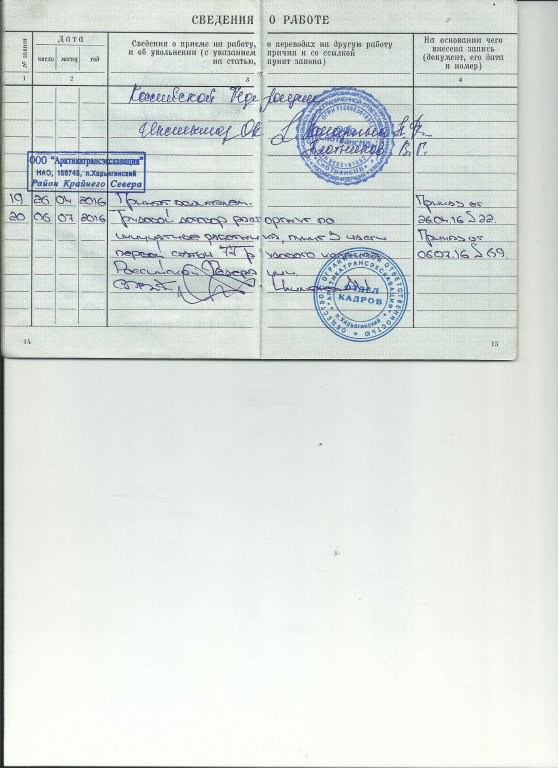 СВЕДЕНИЯ О РАБОТЕ
№ записи
Дата
число месяц год
Сведения о приеме на работу, о переводах на другую работу
и об увольнении (с указанием причин и со ссылкой
на статью, пункт закона)
На основании чего
внесена запись
(документ, его дата
и номер)
1 2 3 4
Российской Федерации
В.Г.
ООО "Арктикатрансэкскавация"
НАО, 166745, п.Харьягинский
Район Крайнего Севера
19 26 04 2016 Принят водителем. Приказ от
26.04.16 № 22.
20 06 07 2016 Трудовой договор расторгнут по
инициативе работника, пункт 3 части Приказ от
первой статьи 77 Трудового кодекса 06.07.16 № 69.
Российской Федерации.
ОБЩЕСТВО С ОГРАНИЧЕННОЙ ОТВЕТСТВЕННОСТЬЮ
"АРКТИКАТРАНСЭКСКАВАЦИЯ"
ОТДЕЛ
КАДРОВ
п.Харьягинский
14
15